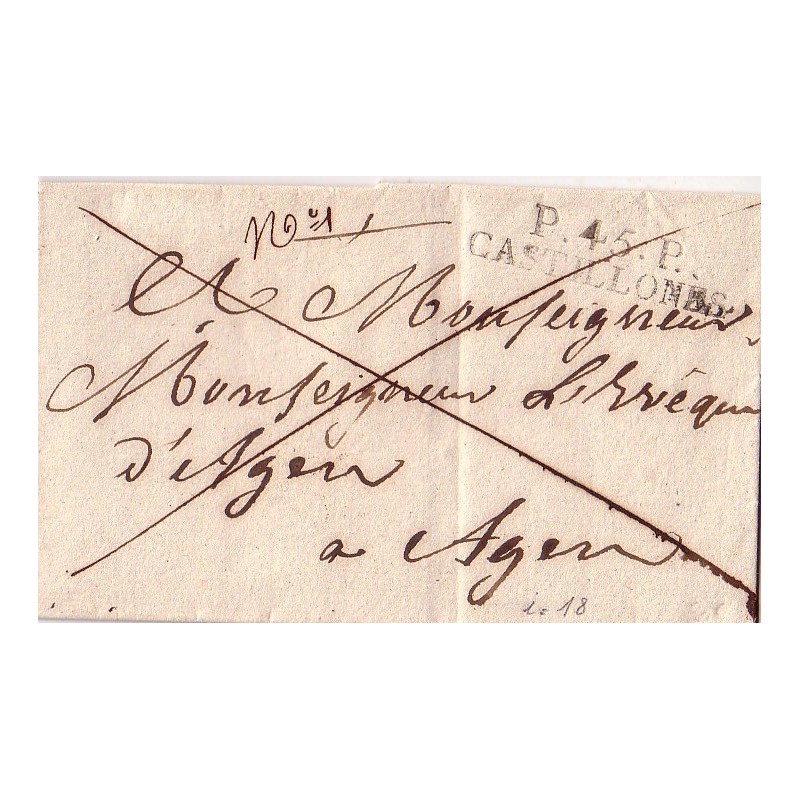 N° 1
P.45.P.
CASTILLONES
A Monseigneur
Monseigneur L'Evêque
d'Agen
a Agen
i=18